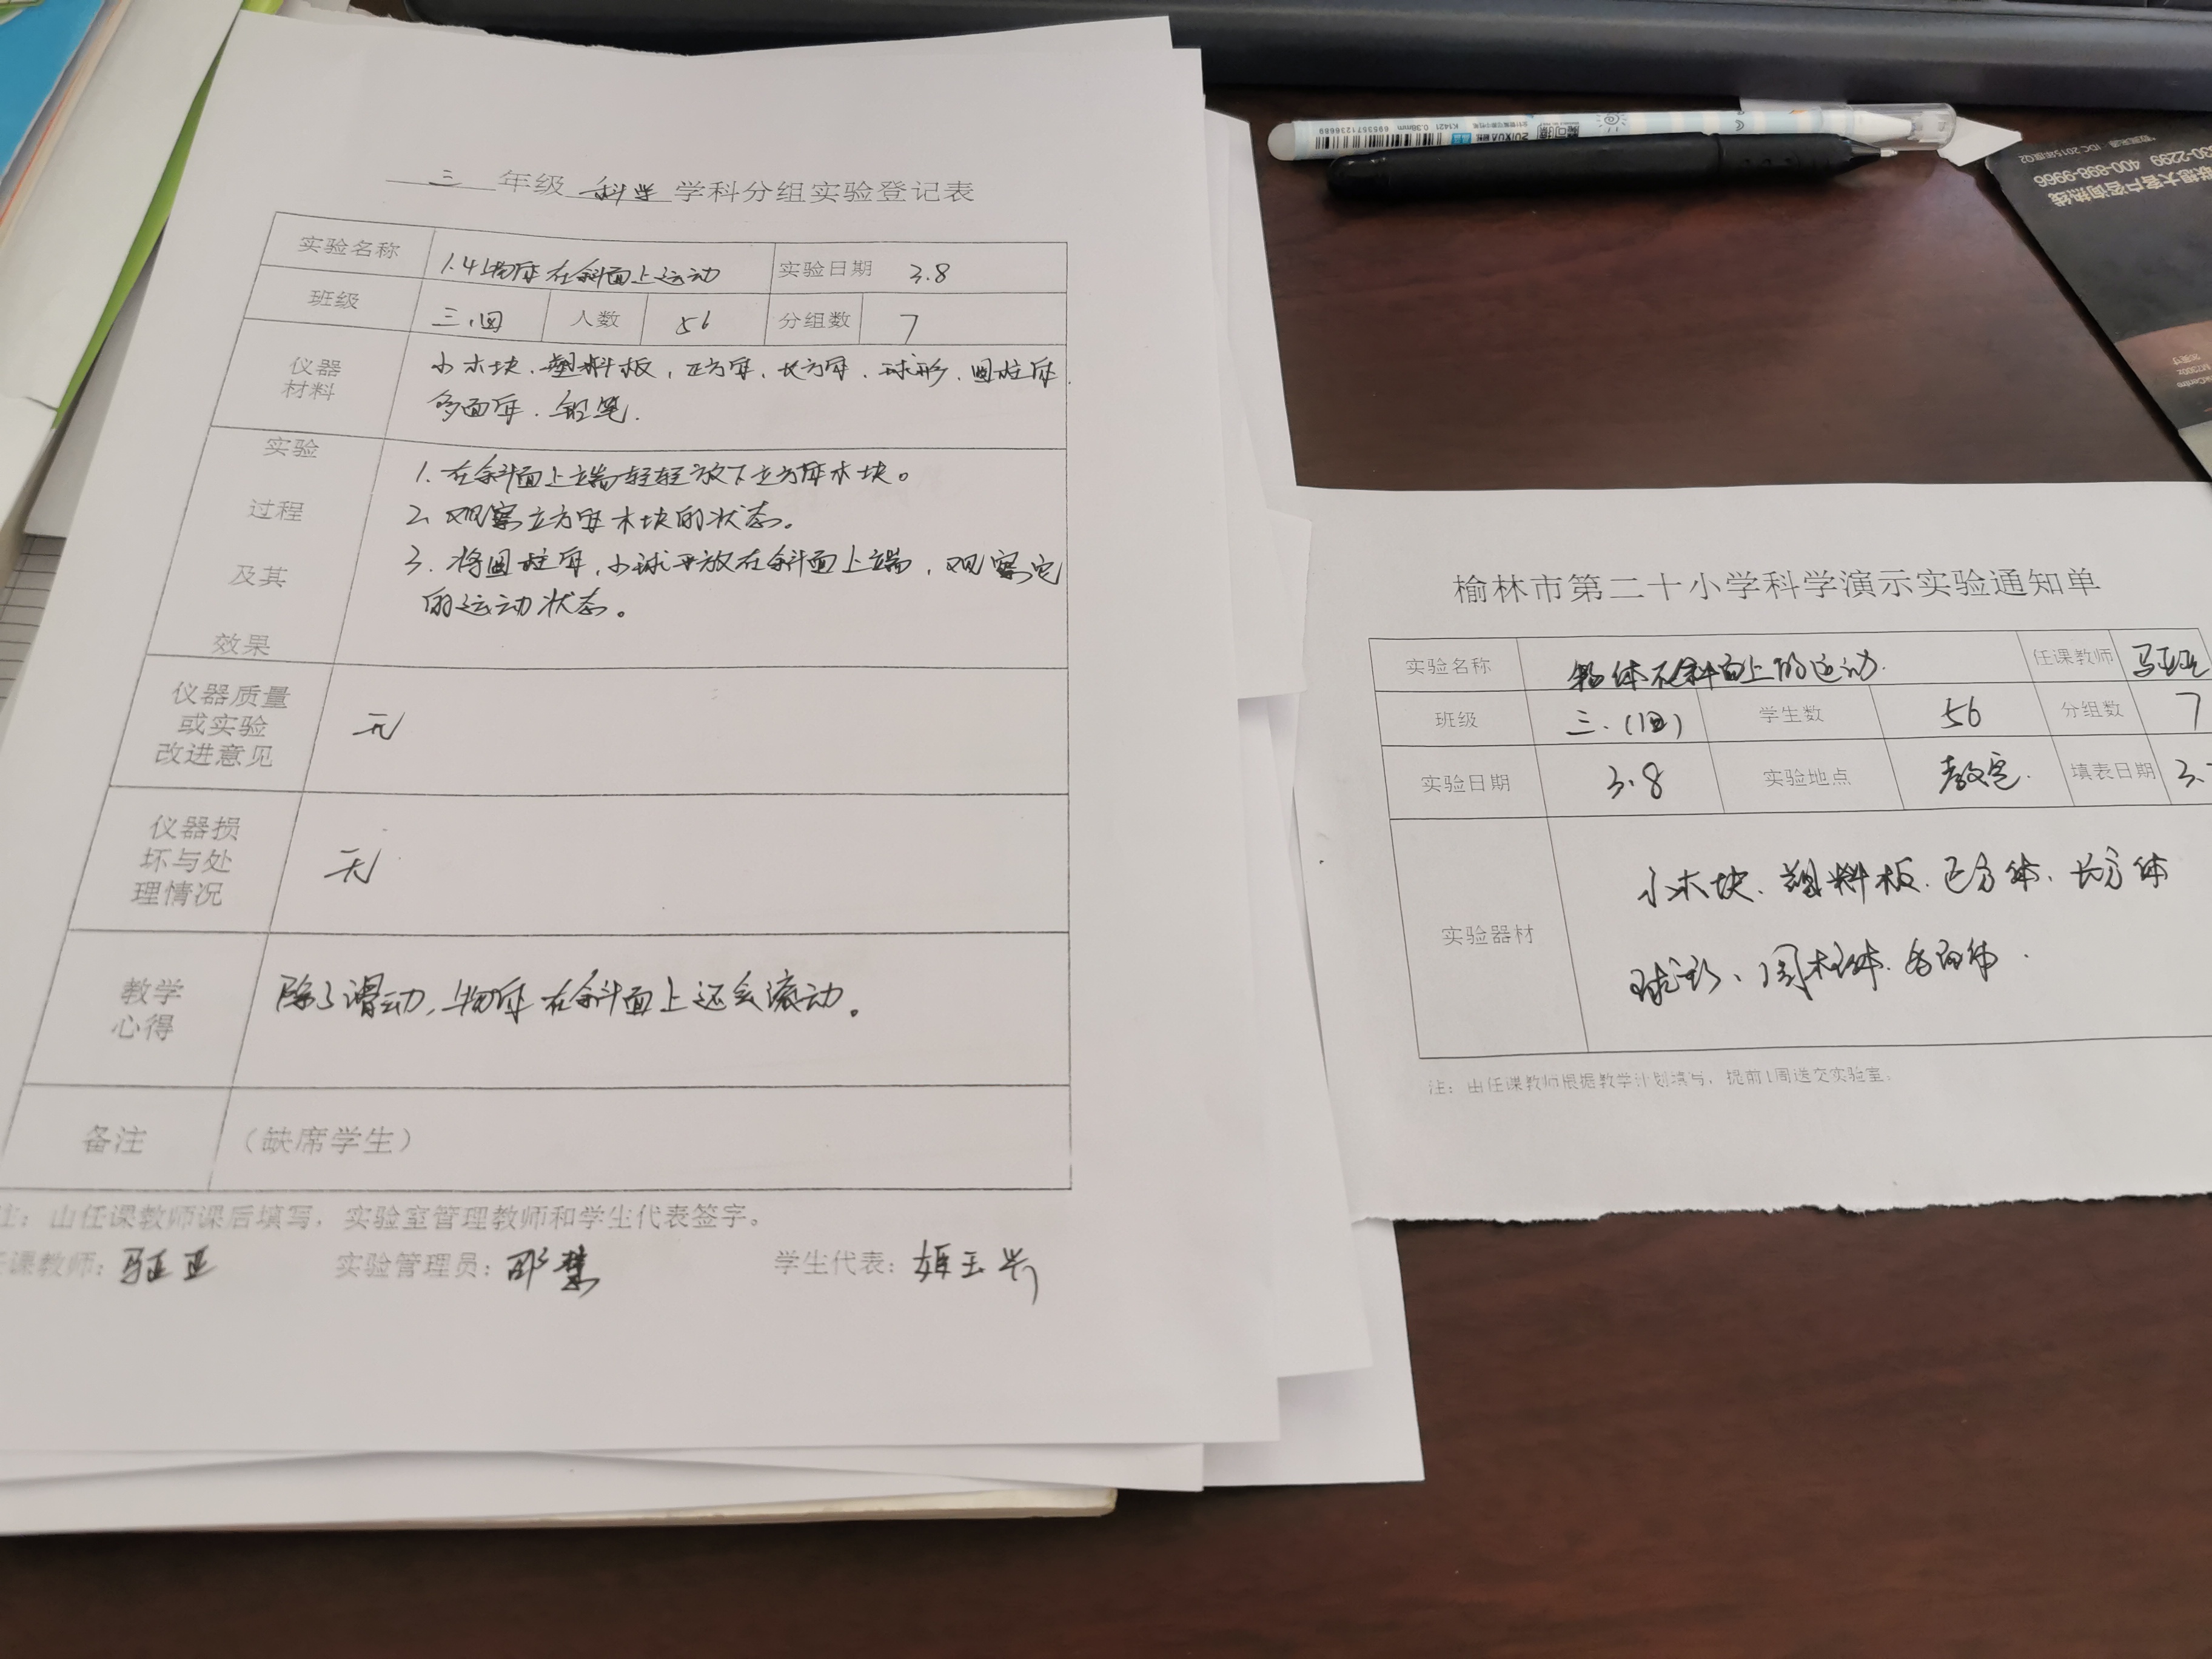 三 年级 科学 学科分组实验登记表
实验名称 1.4物体在斜面上运动 实验日期 3.8
班级 三.四 人数 56 分组数 7
仪器材料 小木块、塑料板、正方体、长方体、球形、圆柱体
多面体、铅笔.
实验过程及其效果
1. 在斜面上端轻轻放下立方体木块。
2. 观察立方体木块的状态。
3. 将圆柱体,小球平放在斜面上端,观察它
的运动状态。
仪器质量或实验改进意见 无
仪器损坏与处理情况 无
教学心得 除了滑动,物体在斜面上还会滚动。
备注 (缺席学生)
注:由任课教师课后填写,实验室管理教师和学生代表签字。
任课教师: 实验管理员: 学生代表:
榆林市第二十小学科学演示实验通知单
实验名称 物体在斜面上的运动. 任课教师
班级 三.(四) 学生数 56 分组数 7
实验日期 3.8 实验地点 教室. 填表日期 3.
实验器材 小木块、塑料板、正方体、长方体
球形、圆柱体、多面体.
注:由任课教师根据教学计划填写,提前1周送交实验室。
ZUIXUA
K3421 0.38mm
6953571236689
联想大客户咨询热线
400-898-9966